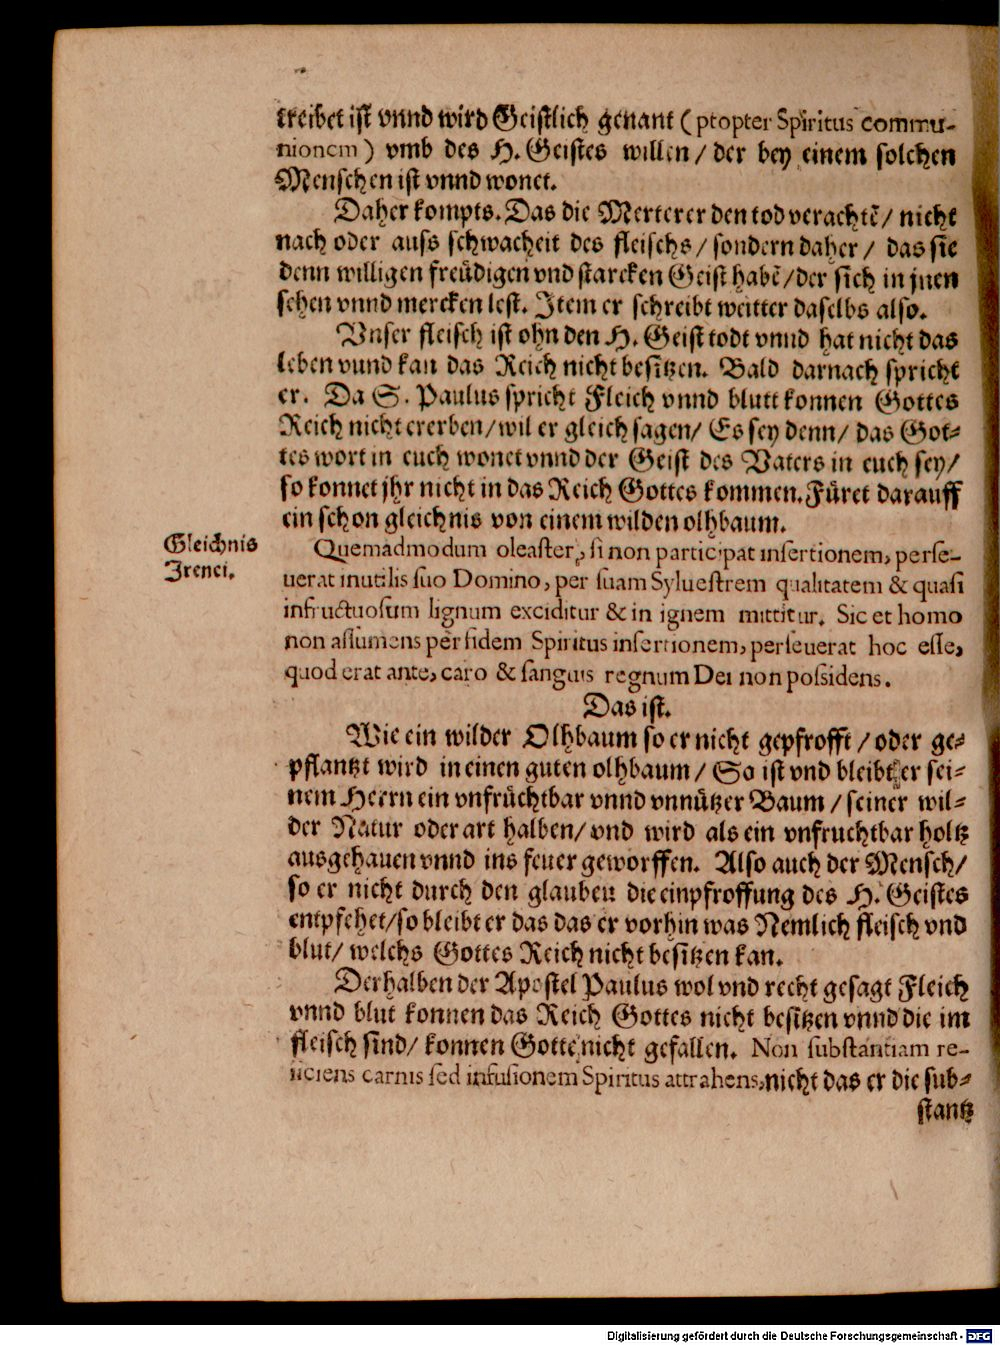 treibet ist vnnd wird Geistlich genant ( ptopter Spiritus commu-
nionem ) vmb des H. Geistes willen / der bey einem solchen
Menschen ist vnnd wonet.
Daher kompts. Das die Merterer den tod verachtẽ / nicht
nach oder auss schwacheit des fleischs / sondern daher / das sie
denn willigen freudigen vnd starcken Geist habẽ / der sich in jnen
sehen vnnd mercken lest. Item er schreibt weitter daselbs also.
Vnser fleisch ist ohn den H. Geist todt vnnd hat nicht das
leben vnnd kan das Reich nicht besitzen. Bald darnach spricht
er. Da S. Paulus spricht Fleich vnnd blutt konnen Gottes
Reich nicht ererben / wil er gleich sagen / Es sey denn / das Got-
tes wort in euch wonet vnnd der Geist des Vaters in euch sey /
so konnet jhr nicht in das Reich Gottes kommen. Füret darauff
ein schon gleichnis von einem wilden olhbaum.
Gleichnis
Irenei.
Quemadmodum oleaster, si non participat insertionem, perse-
uerat inutilis suo Domino, per suam Syluestrem qualitatem & quasi
infructuosum lignum exciditur & in ignem mittitur. Sic et homo
non assumens per fidem Spiritus insertionem, perseuerat hoc esse,
quod erat ante, caro & sanguis regnum Dei non possidens.
Das ist.
Wie ein wilder Olhbaum so er nicht gepfrofft / oder ge-
pflantzt wird in einen guten olhbaum / So ist vnd bleibt er sei-
nem Herrn ein vnfrüchtbar vnnd vnnützer Baum / seiner wil-
der Natur oder art halben / vnd wird als ein vnfruchtbar holtz
ausgehauen vnnd ins feuer geworffen. Also auch der Mensch /
so er nicht durch den glauben die einpfroffung des H. Geistes
entpfehet / so bleibt er das das er vorhin was Nemlich fleisch vnd
blut / welchs Gottes Reich nicht besitzen kan.
Derhalben der Apostel Paulus wol vnd recht gesagt Fleich
vnnd blut konnen das Reich Gottes nicht besitzen vnnd die im
fleisch sind / konnen Gotte nicht gefallen. Non substantiam re-
iiciens carnis sed infusionem Spiritus attrahens, nicht das er die sub-
stantz
Digitalisierung gefördert durch die Deutsche Forschungsgemeinschaft - DFG